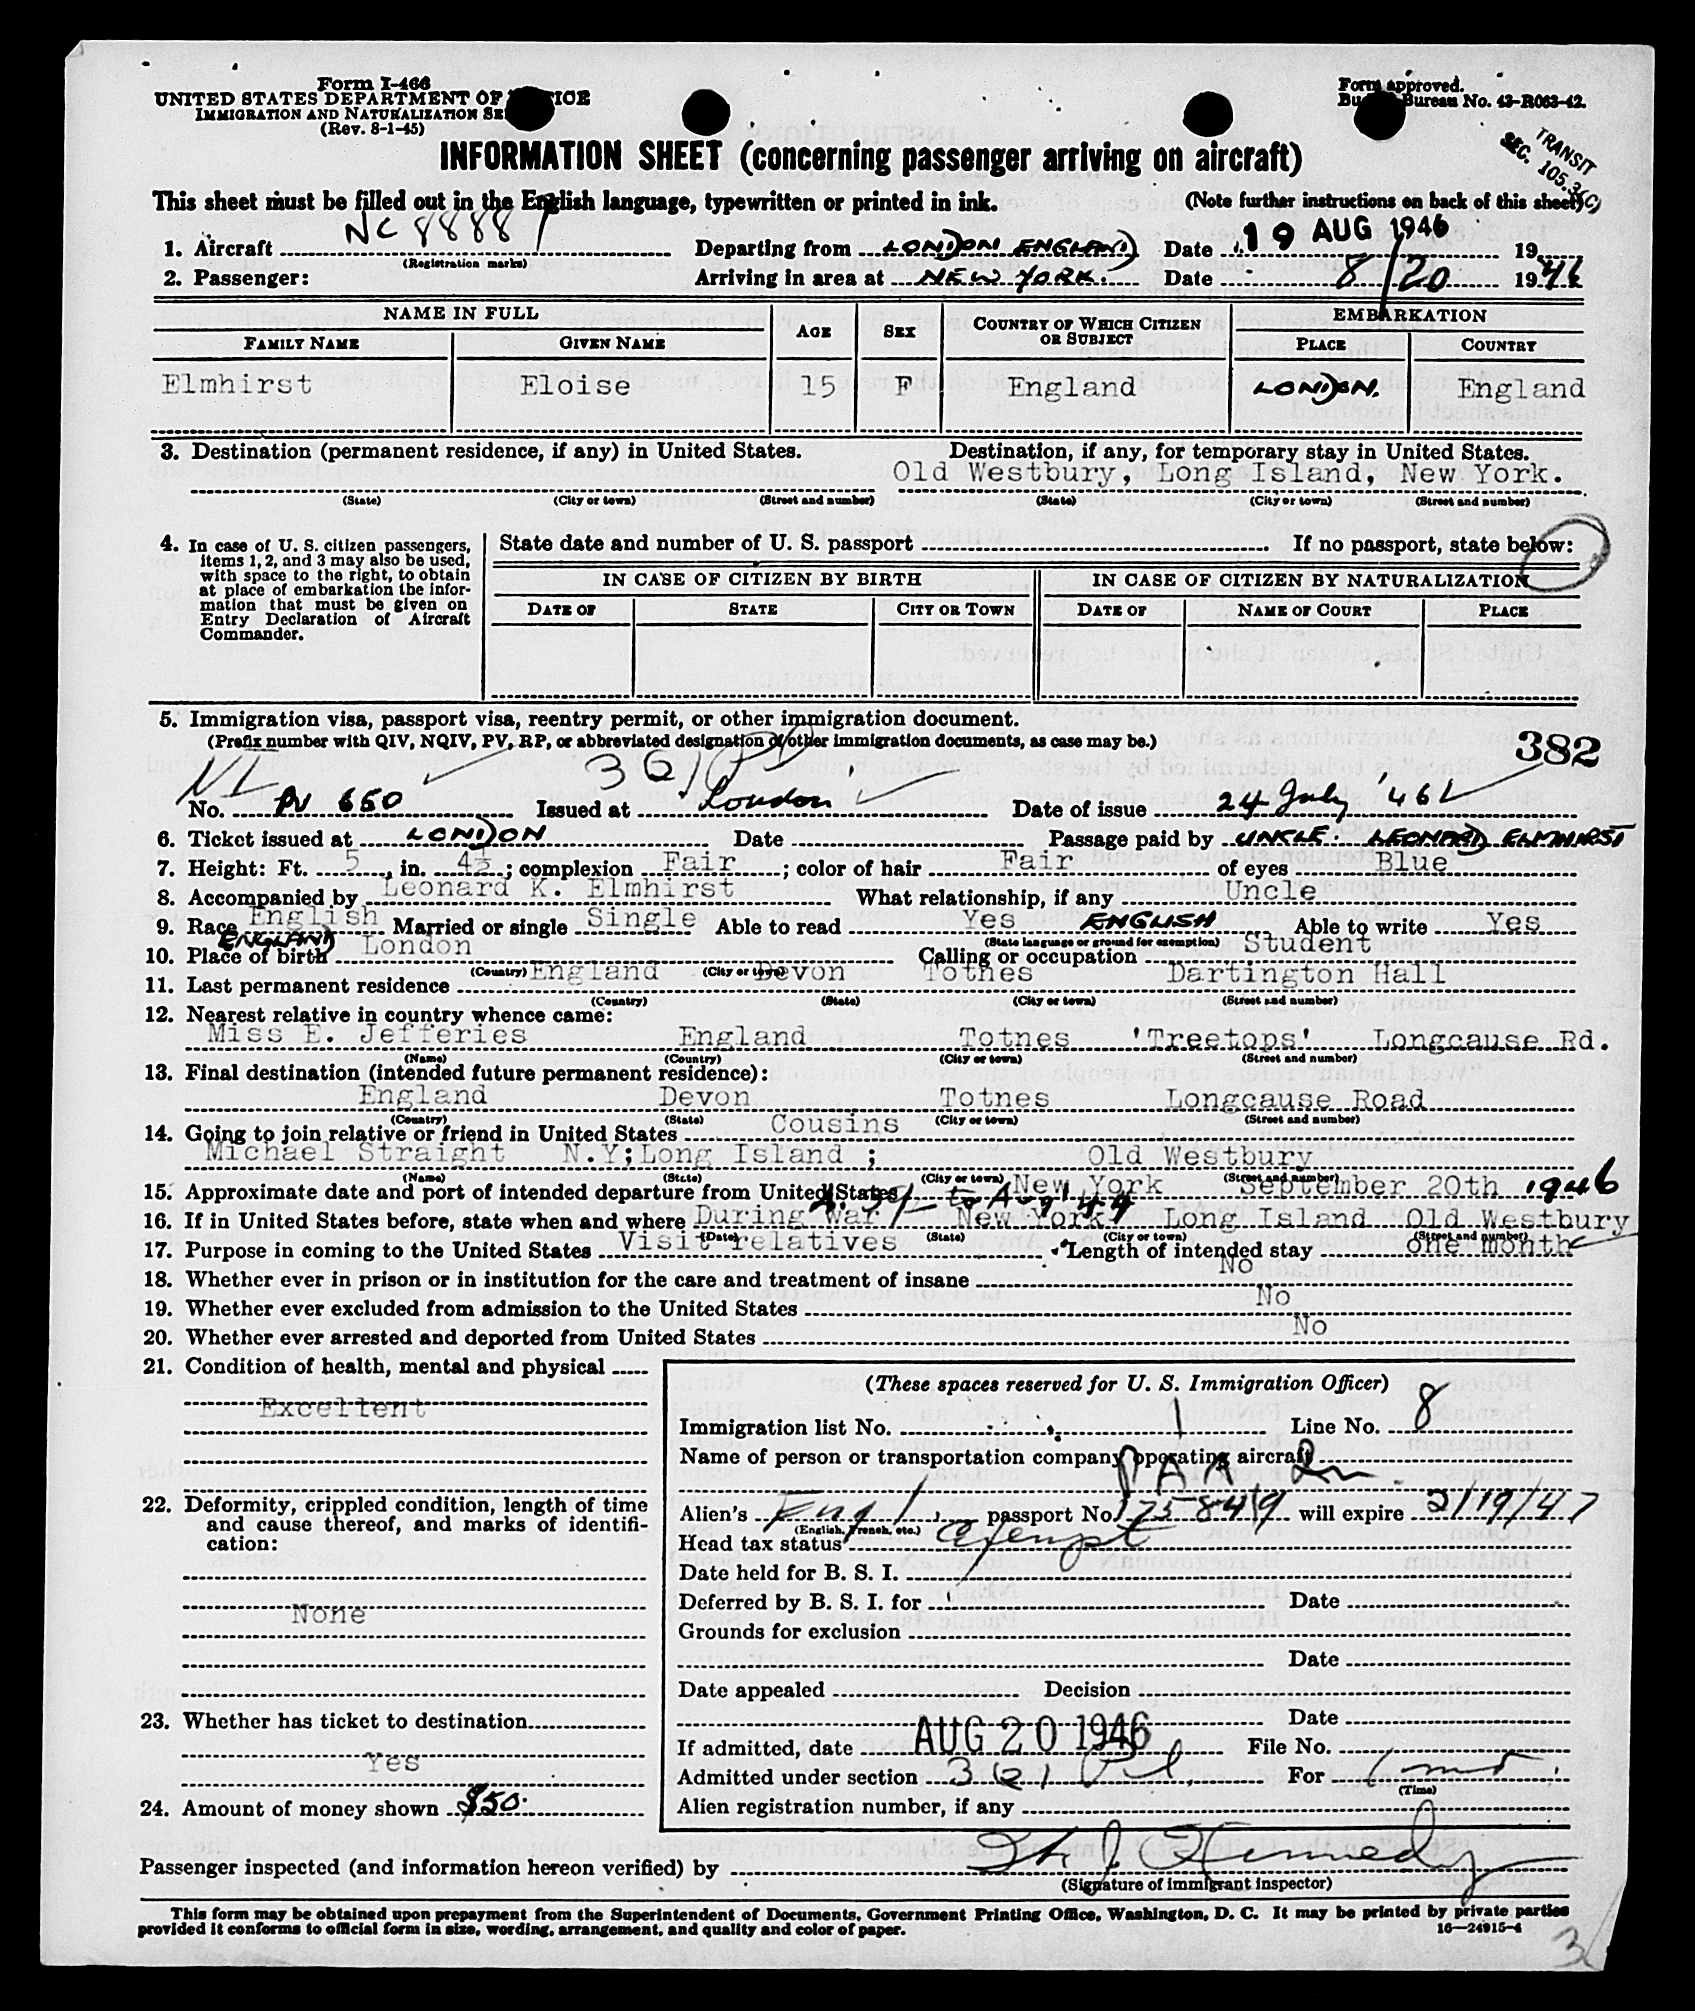 Form I-466
UNITED STATES DEPARTMENT OF JUSTICE
IMMIGRATION AND NATURALIZATION SE
(Rev. 8-1-45)
Form approved.
Bu Bureau No. 43-R063-42.
TRANSIT
SEC. 105.3(c)
INFORMATION SHEET (concerning passenger arriving on aircraft)
This sheet must be filled out in the English language, typewritten or printed in ink. (Note further instructions on back of this sheet)
1. Aircraft NC 88881 Departing from LONDON ENGLAND Date 19 AUG 1946 19
(Registration marks)
2. Passenger: Arriving in area at NEW YORK. Date 8/20 1946
NAME IN FULL AGE SEX COUNTRY OF WHICH CITIZEN OR SUBJECT EMBARKATION
FAMILY NAME GIVEN NAME PLACE COUNTRY
Elmhirst Eloise 15 F England LONDON. England
3. Destination (permanent residence, if any) in United States. Destination, if any, for temporary stay in United States.
Old Westbury, Long Island, New York.
(State) (City or town) (Street and number) (State) (City or town) (Street and number)
4. In case of U. S. citizen passengers, items 1, 2, and 3 may also be used, with space to the right, to obtain at place of embarkation the information that must be given on Entry Declaration of Aircraft Commander.
State date and number of U. S. passport If no passport, state below:
IN CASE OF CITIZEN BY BIRTH IN CASE OF CITIZEN BY NATURALIZATION
DATE OF STATE CITY OR TOWN DATE OF NAME OF COURT PLACE
5. Immigration visa, passport visa, reentry permit, or other immigration document.
(Prefix number with QIV, NQIV, PV, RP, or abbreviated designation of other immigration documents, as case may be.)
382
No. PV 650 Issued at London Date of issue 24 July, 46
6. Ticket issued at LONDON Date Passage paid by UNCLE. LEONARD ELMHIRST
7. Height: Ft. 5, in. 4½; complexion Fair; color of hair Fair of eyes Blue
8. Accompanied by Leonard K. Elmhirst What relationship, if any Uncle
9. Race English Married or single Single Able to read Yes ENGLISH Able to write Yes
(State language or ground for exemption)
10. Place of birth ENGLAND London Calling or occupation Student
(Country) (City or town)
11. Last permanent residence England Devon Totnes Dartington Hall
(Country) (State) (City or town) (Street and number)
12. Nearest relative in country whence came:
Miss E. Jefferies England Totnes 'Treetops' Longcause Rd.
(Name) (Country) (City or town) (Street and number)
13. Final destination (intended future permanent residence):
England Devon Totnes Longcause Road
(Country) (State) (City or town) (Street and number)
14. Going to join relative or friend in United States Cousins
Michael Straight N.Y; Long Island ; Old Westbury
(Name) (State) (City or town) (Street and number)
15. Approximate date and port of intended departure from United States New York September 20th 1946
16. If in United States before, state when and where During War New York Long Island Old Westbury
(Date) (State) (City or town) (Street and number)
17. Purpose in coming to the United States Visit relatives Length of intended stay one month
18. Whether ever in prison or in institution for the care and treatment of insane No
19. Whether ever excluded from admission to the United States No
20. Whether ever arrested and deported from United States No
21. Condition of health, mental and physical
Excellent
22. Deformity, crippled condition, length of time and cause thereof, and marks of identification:
None
23. Whether has ticket to destination
Yes
24. Amount of money shown $50.
(These spaces reserved for U. S. Immigration Officer)
Immigration list No. 1 Line No. 8
Name of person or transportation company operating aircraft
P A A
Alien's Eng passport No. 175849 will expire 2/19/47
(English, French, etc.)
Head tax status exempt
Date held for B. S. I.
Deferred by B. S. I. for Date
Grounds for exclusion
Date
Date appealed Decision
Date
If admitted, date AUG 20 1946 File No.
Admitted under section 3(2) For 1 mo
(Time)
Alien registration number, if any
Passenger inspected (and information hereon verified) by J Kennedy
(Signature of immigrant inspector)
This form may be obtained upon prepayment from the Superintendent of Documents, Government Printing Office, Washington, D. C. It may be printed by private parties
provided it conforms to official form in size, wording, arrangement, and quality and color of paper. 16—24915-4